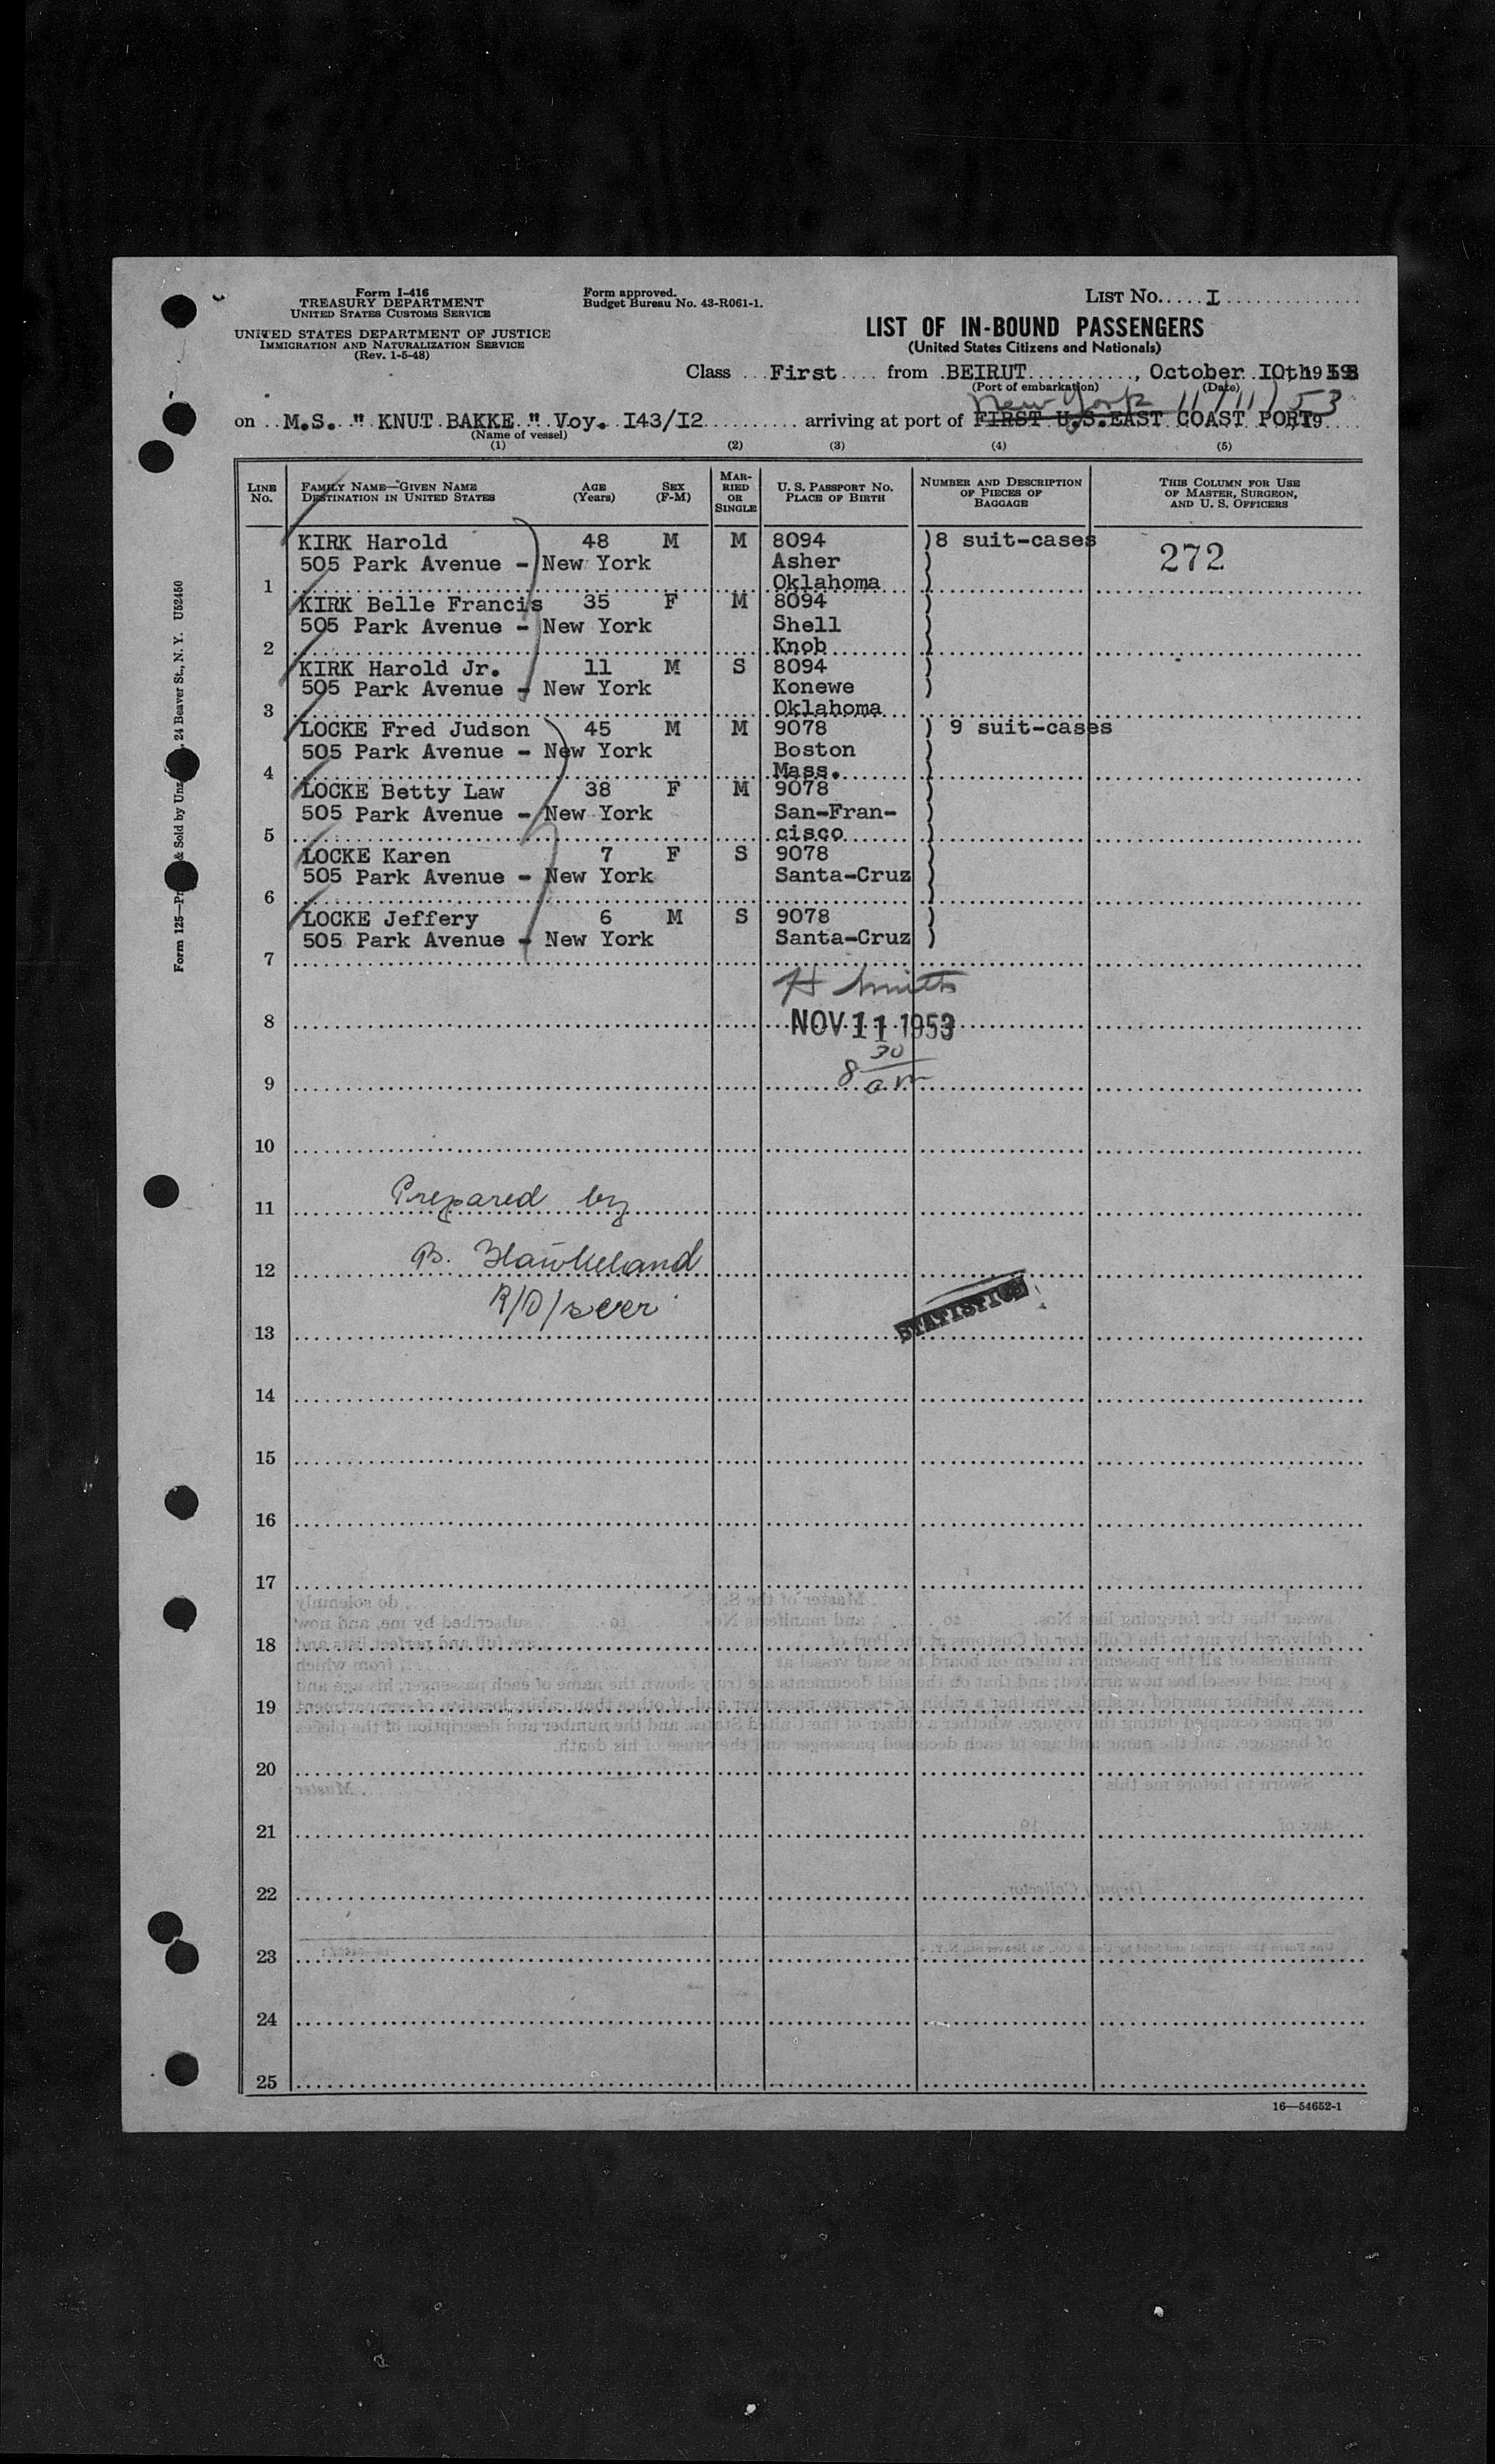 Form I-416
TREASURY DEPARTMENT
UNITED STATES CUSTOMS SERVICE
UNITED STATES DEPARTMENT OF JUSTICE
IMMIGRATION AND NATURALIZATION SERVICE
(Rev. 1-5-48)
Form approved.
Budget Bureau No. 43-R061-1.
LIST NO. I
LIST OF IN-BOUND PASSENGERS
(United States Citizens and Nationals)
Class First from BEIRUT, October IOth 1953
(Port of embarkation) (Date)
New York 11/11/53
on M.S. " KNUT BAKKE " Voy. I43/I2 arriving at port of FIRST U.S.EAST COAST PORT, 19
(Name of vessel)
(1) (2) (3) (4) (5)
LINE NO.
FAMILY NAME—GIVEN NAME
DESTINATION IN UNITED STATES
AGE (Years)
SEX (F-M)
MARRIED OR SINGLE
U. S. PASSPORT NO.
PLACE OF BIRTH
NUMBER AND DESCRIPTION OF PIECES OF BAGGAGE
THIS COLUMN FOR USE OF MASTER, SURGEON, AND U. S. OFFICERS
KIRK Harold 48 M M 8094 )8 suit-cases 272
505 Park Avenue - New York Asher )
1 Oklahoma )
KIRK Belle Francis 35 F M 8094 )
505 Park Avenue - New York Shell )
2 Knob )
KIRK Harold Jr. 11 M S 8094 )
505 Park Avenue - New York Konewe )
3 Oklahoma
LOCKE Fred Judson 45 M M 9078 ) 9 suit-cases
505 Park Avenue - New York Boston )
4 Mass. )
LOCKE Betty Law 38 F M 9078 )
505 Park Avenue - New York San-Fran- )
5 cisco )
LOCKE Karen 7 F S 9078 )
505 Park Avenue - New York Santa-Cruz )
6 )
LOCKE Jeffery 6 M S 9078 )
505 Park Avenue - New York Santa-Cruz )
7
H Smith
8 NOV 11 1953
8 30 am
9
10
Prepared by
11
B.
12
13
STATISTICS
14
15
16
17
18
19
20
21
22
23
24
25
16—54652-1
Form 125—Pr & Sold by Unz 24 Beaver St., N. Y. U52450